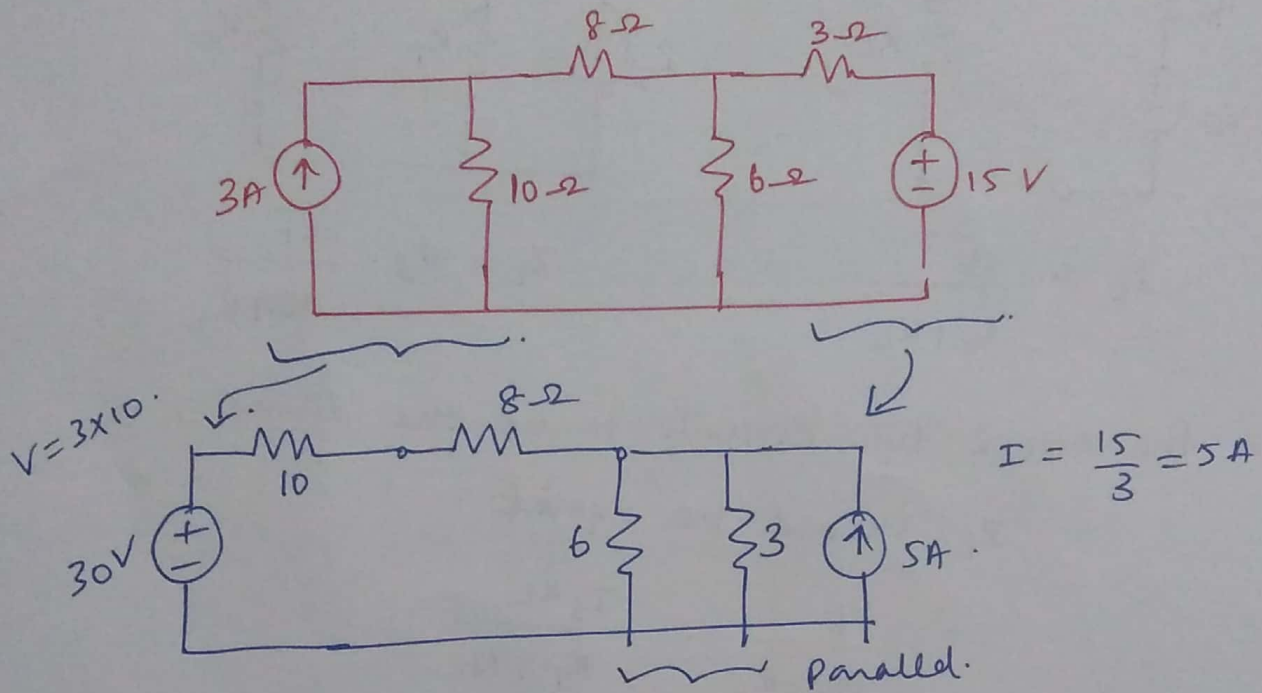 8Ω 3Ω
3A 10Ω 6Ω + - 15 V
V=3×10.
8Ω
10
I = 15/3 = 5 A
30V + - 6 3 5A.
Parallel.